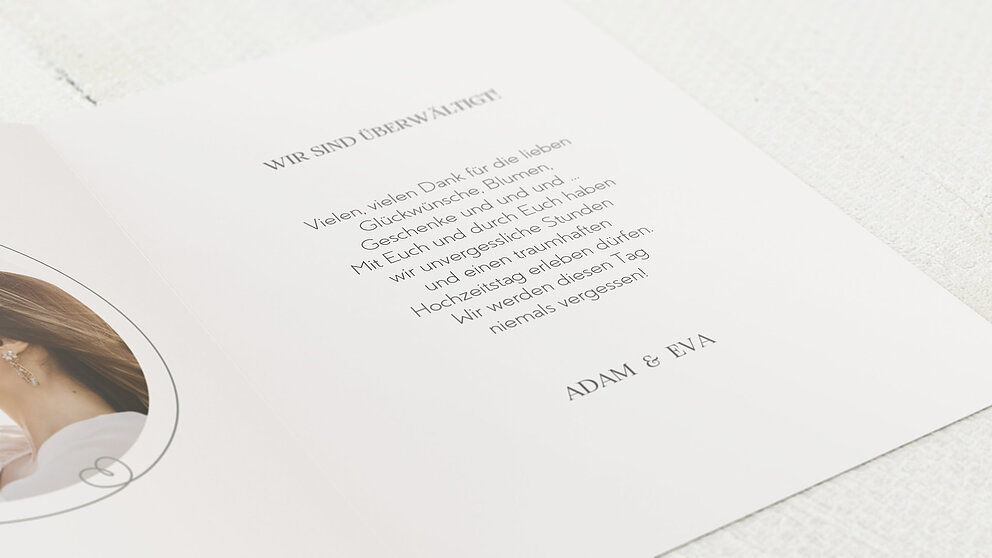 WIR SIND ÜBERWÄLTIGT!
Vielen, vielen Dank für die lieben
Glückwünsche, Blumen,
Geschenke und und und ...
Mit Euch und durch Euch haben
wir unvergessliche Stunden
und einen traumhaften
Hochzeitstag erleben dürfen.
Wir werden diesen Tag
niemals vergessen!
ADAM & EVA